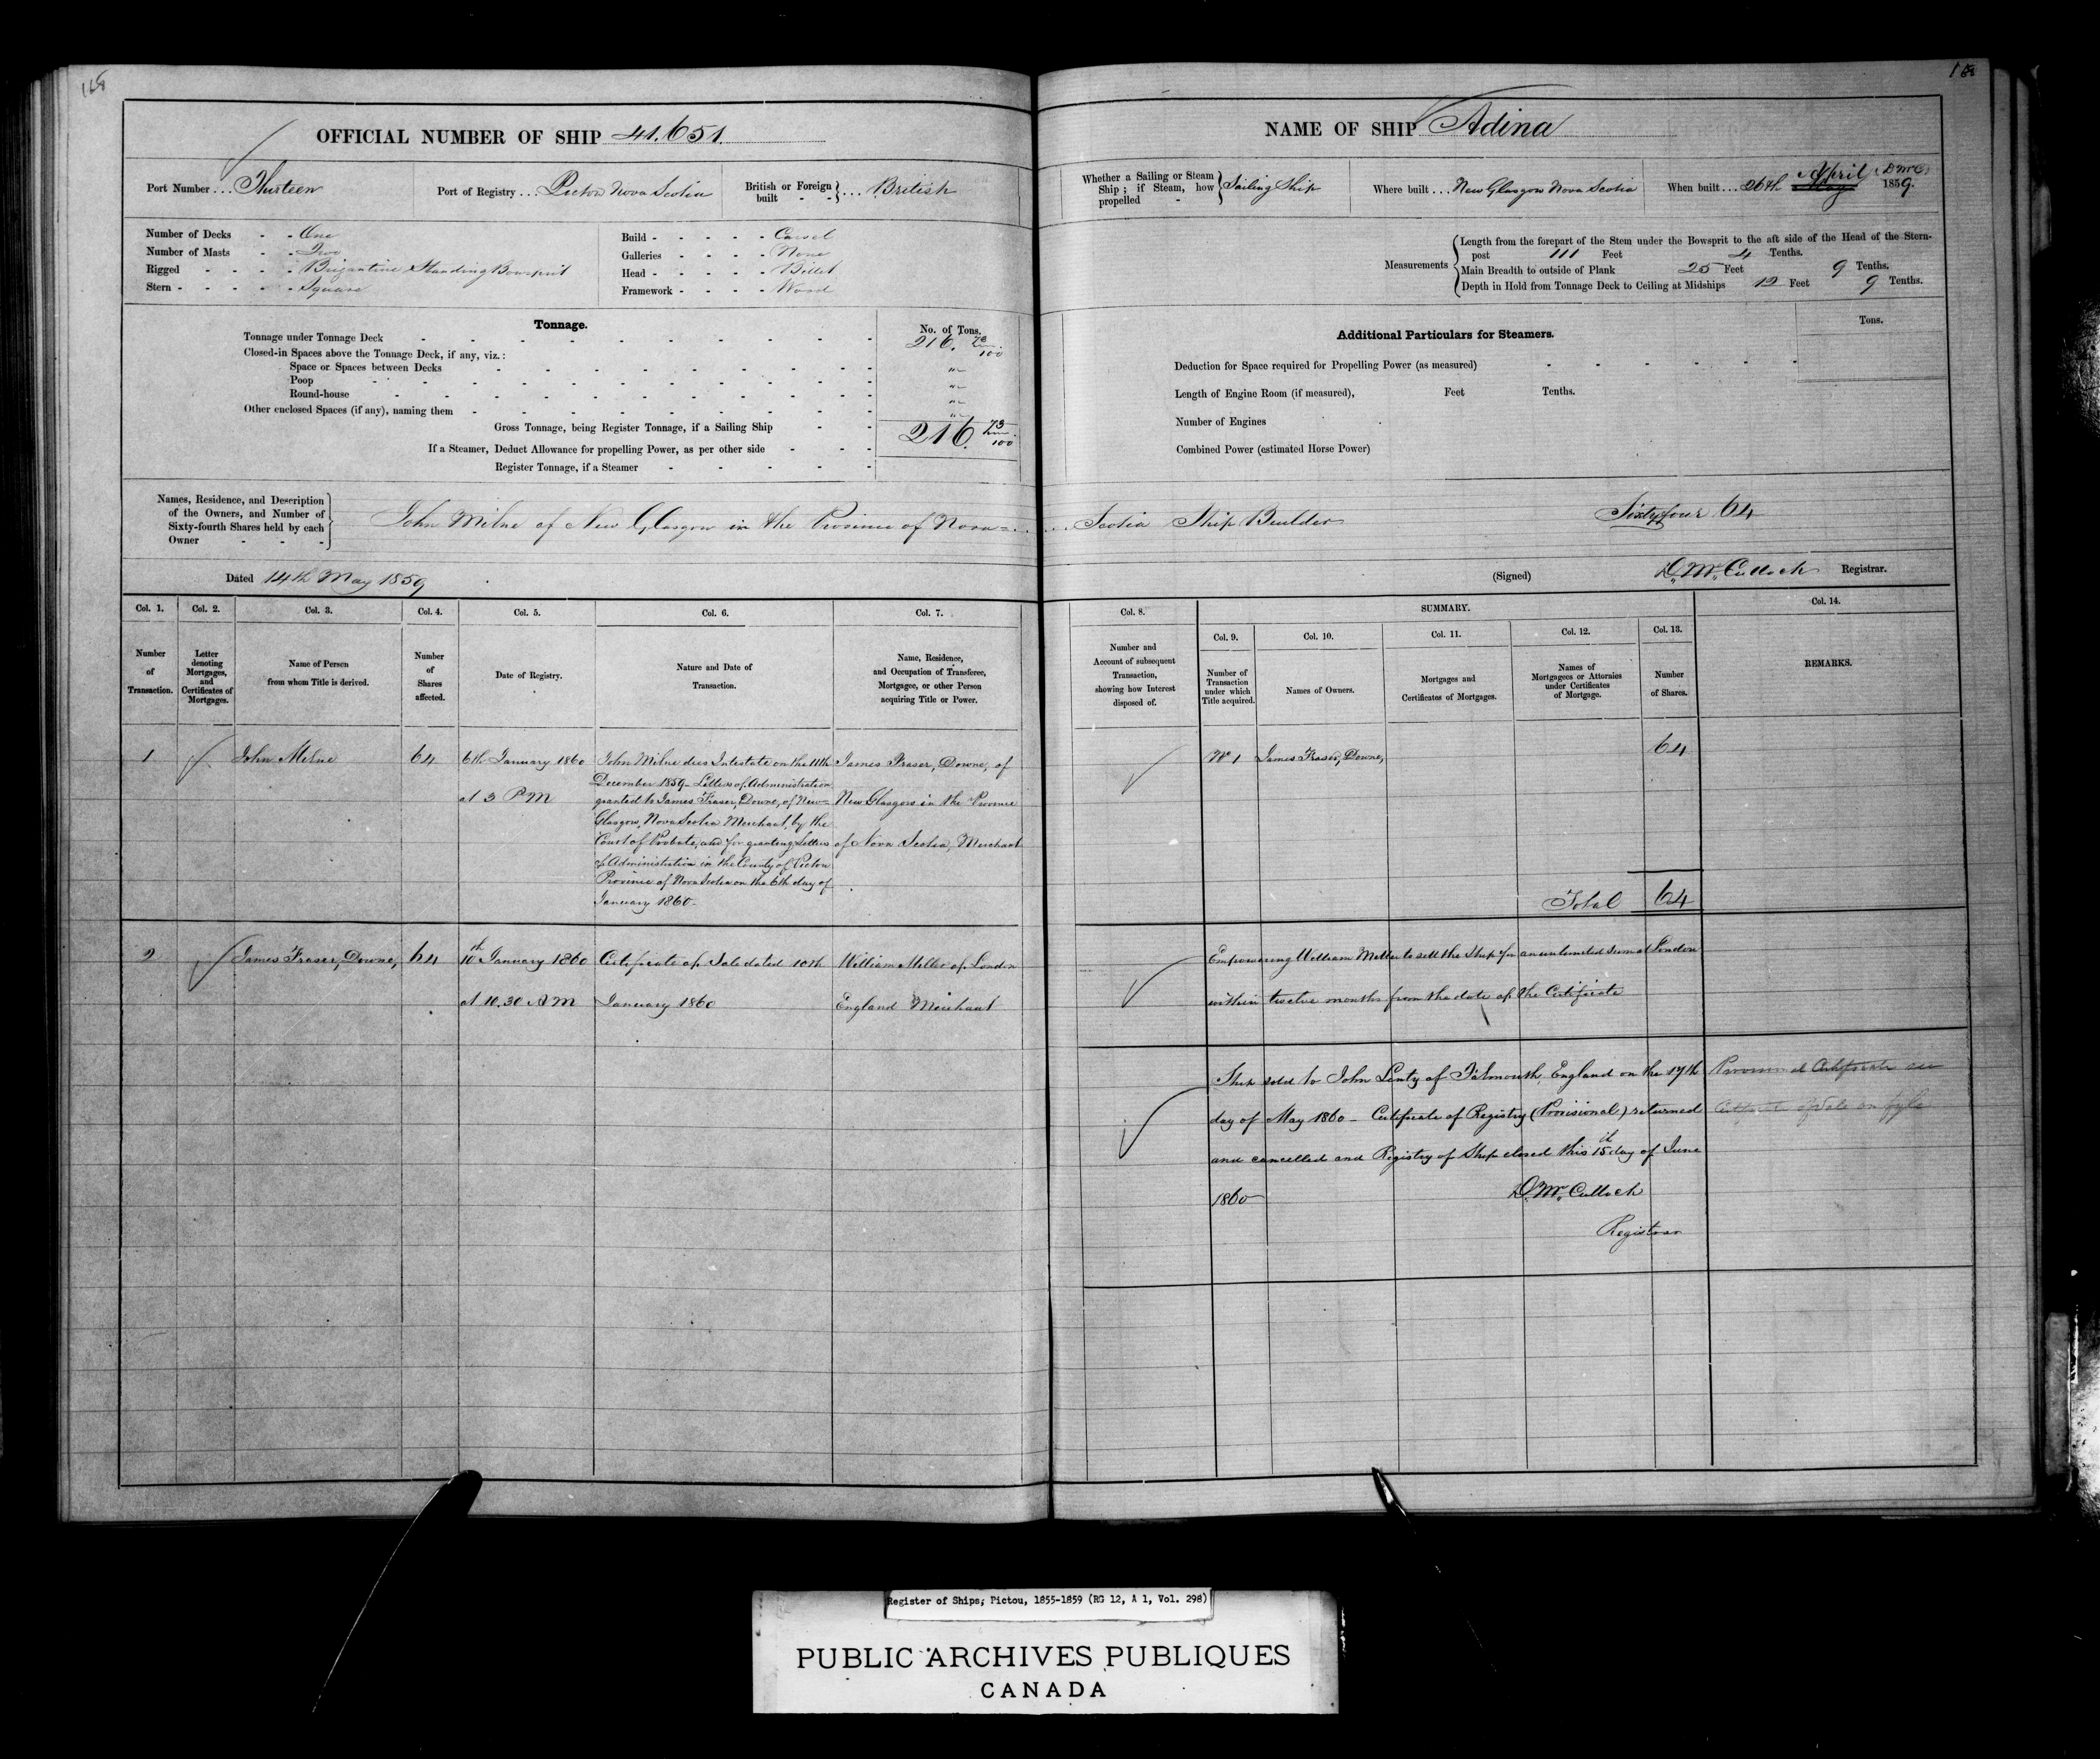 168
OFFICIAL NUMBER OF SHIP 41.651.
Port Number ... Thirteen
Port of Registry ... Pictou Nova Scotia
British or Foreign built - - } ... British
Number of Decks - - One
Number of Masts - - Two
Rigged - - - - - Brigantine Standing Bowsprit
Stern - - - - - - Square
Build - - - - - Carvel
Galleries - - - - None
Head - - - - - Billet
Framework - - - - Wood
Tonnage.
No. of Tons.
Tonnage under Tonnage Deck 216. 73/100
Closed-in Spaces above the Tonnage Deck, if any, viz.:
Space or Spaces between Decks "
Poop "
Round-house "
Other enclosed Spaces (if any), naming them "
Gross Tonnage, being Register Tonnage, if a Sailing Ship 216. 73/100
If a Steamer, Deduct Allowance for propelling Power, as per other side
Register Tonnage, if a Steamer
Names, Residence, and Description
of the Owners, and Number of
Sixty-fourth Shares held by each
Owner
John Milne of New Glasgow in the Province of Nova=
Dated 14th May 1859
Col. 1. Col. 2. Col. 3. Col. 4. Col. 5. Col. 6. Col. 7.
Number of Transaction.
Letter denoting Mortgages, and Certificates of Mortgages.
Name of Person from whom Title is derived.
Number of Shares affected.
Date of Registry.
Nature and Date of Transaction.
Name, Residence, and Occupation of Transferee, Mortgagee, or other Person acquiring Title or Power.
1
John Milne
64
6th January 1860
at 3 P M
John Milne dies Intestate on the 11th
December 1859 - Letters of Administration
granted to James Fraser, Downe, of New=
Glasgow, Nova Scotia Merchant, by the
Court of Probate, and for granting Letters
of Administration in the County of Pictou
Province of Nova Scotia on the 6th day of
January 1860 -
James Fraser, Downe, of
New Glasgow in the Province
of Nova Scotia, Merchant
2
James Fraser, Downe,
64
10th January 1860
at 10.30 A M
Certificate of Sale dated 10th
January 1860
William Miller of London
England Merchant
168
NAME OF SHIP Adina
Whether a Sailing or Steam Ship; if Steam, how propelled - } Sailing Ship
Where built ... New Glasgow Nova Scotia
When built ... 26th May April DMC 1859.
Measurements
Length from the forepart of the Stem under the Bowsprit to the aft side of the Head of the Stern-
post 111 Feet 4 Tenths.
Main Breadth to outside of Plank 25 Feet 9 Tenths.
Depth in Hold from Tonnage Deck to Ceiling at Midships 12 Feet 9 Tenths.
Additional Particulars for Steamers.
Tons.
Deduction for Space required for Propelling Power (as measured)
Length of Engine Room (if measured), Feet Tenths.
Number of Engines
Combined Power (estimated Horse Power)
Scotia Ship Builder Sixtyfour 64
(Signed) D. McCulloch Registrar.
Col. 8. SUMMARY. Col. 14.
Col. 9. Col. 10. Col. 11. Col. 12. Col. 13.
Number and Account of subsequent Transaction, showing how Interest disposed of.
Number of Transaction under which Title acquired.
Names of Owners.
Mortgages and Certificates of Mortgages.
Names of Mortgagees or Attornies under Certificates of Mortgage.
Number of Shares.
REMARKS.
No 1 James Fraser, Downe, 64
Total 64
Empowering William Miller to sell the Ship for an unlimited sum at London
within twelve months from the date of the Certificate
Ship sold to John Lenty of Falmouth, England on the 17th
day of May 1860 - Certificate of Registry (Provisional) returned
and cancelled and Registry of Ship closed this 15th day of June
1860
D. McCulloch
Registrar
Provisional Certificate
of Sale on fyle
Register of Ships; Pictou, 1855-1859 (RG 12, A 1, Vol. 298)
PUBLIC ARCHIVES PUBLIQUES
CANADA